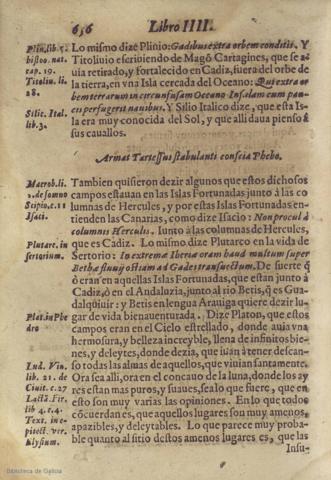 656 Libro IIII.
Plin.lib.5. Lo mismo dize Plinio: Gadibus extra orbem conditis. Y
histo.nat. Titoliuio escriuiendo de Magõ Cartagines, que se a-
cap.19. uia retirado, y fortalecido en Cadiz, fuera del orbe de
Titoliu.li. la tierra, en vna Isla cercada del Oceano: Qui extra or
28. bem terrarum in circunfusam Oceano Insulam cum pau-
cis perfugerit nauibus. Y Silio Italico dize, que esta Is-
Silic. Ital. la era muy conocida del Sol, y que alli daua pienso à
lib.3. sus cauallos.
Armat Tartessus stabulanti conscia Phebo.
Macrob.li. Tambien quisieron dezir algunos que estos dichosos
de somno campos estauan en las Islas Fortunadas junto à las co-
Scipio.c.11 lumnas de Hercules, y por estas Islas Fortunadas en-
Isaci. tienden las Canarias, como dize Isacio: Non procul à
columnis Herculis. Iunto à las columnas de Hercules,
Plutarc.in que es Cadiz. Lo mismo dize Plutarco en la vida de
sertorium. Sertorio: In extremæ Iberiæ oram haud multum super
Bethæ fluuij ostiam ad Gades transuectum. De suerte q̃
ò eran en aquellas Islas Fortunadas, que estan junto à
Cadiz, ò en el Andaluzia, junto al rio Betis, q̃ es Gua-
dalqũiuir: y Betis en lengua Arauiga quiere dezir lu-
Plat.in Phe gar de vida bienauenturada. Dize Platon, que estos
dro campos eran en el Cielo estrellado, donde auia vna
hermosura, y belleza increyble, llena de infinitos bie-
nes, y deleytes, donde dezia, que iuan à tener descan-
Lud. Viu. so todas las almas de aquellos, que viuian santamente.
lib. 21. de Ora sea alli, ora en el concauo de la luna, donde los ay
Ciuit.c.27 res estan mas puros, y suaues, sea lo que fuere, que en
Lactã.Fir. esto son muy varias las opiniones. En lo que todos
lib 4.c.4. cõcuerdan es, que aquellos lugares son muy amenos,
Text. in e- apazibles, y deleytables. Lo que parece muy proba-
pitect. ver. ble quanto al sitio destos amenos lugares es, que las
Elysium. Insu-
Biblioteca de Galicia